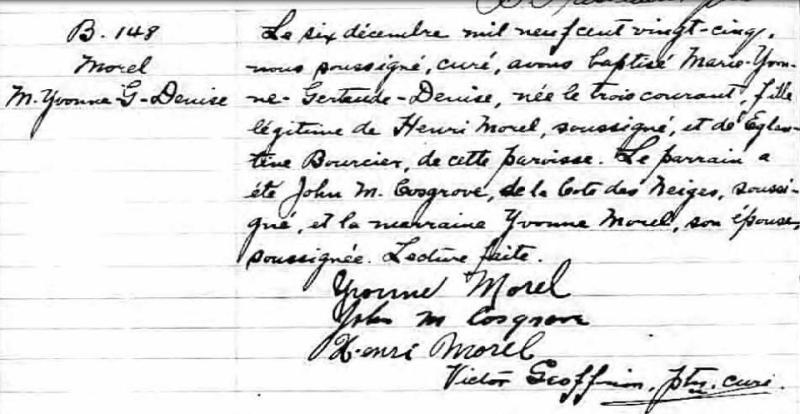 B. 148
Morel
M. Yvonne-G-Denise
Le six décembre mil neuf cent vingt-cinq,
nous soussigné, curé, avons baptisé Marie-Yvon-
ne-Gertrude-Denise, née le trois courant, fille
légitime de Henri Morel, soussigné, et de Eglan-
tine Bourcier, de cette paroisse. Le parrain a
été John M. Cosgrove, de la Cote des Neiges, soussi-
gné, et la marraine Yvonne Morel, son épouse,
soussignée. Lecture faite.
Yvonne Morel
John M Cosgrove
Henri Morel
Victor Geoffrion, ptre, curé.